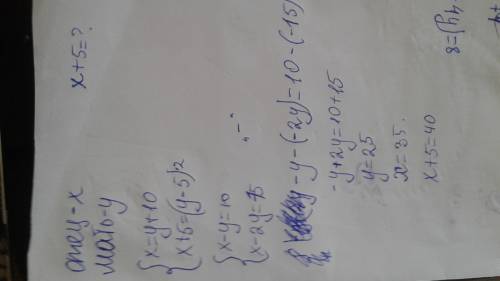 отец - x x+5=?
мать - y
{x=y+10
{x+5=(y-5)·2
{x-y=10
{x-2y=-15 „-“
-y-(-2y)=10-(-15)
-y+2y=10+15
y=25
x=35.
x+5=40